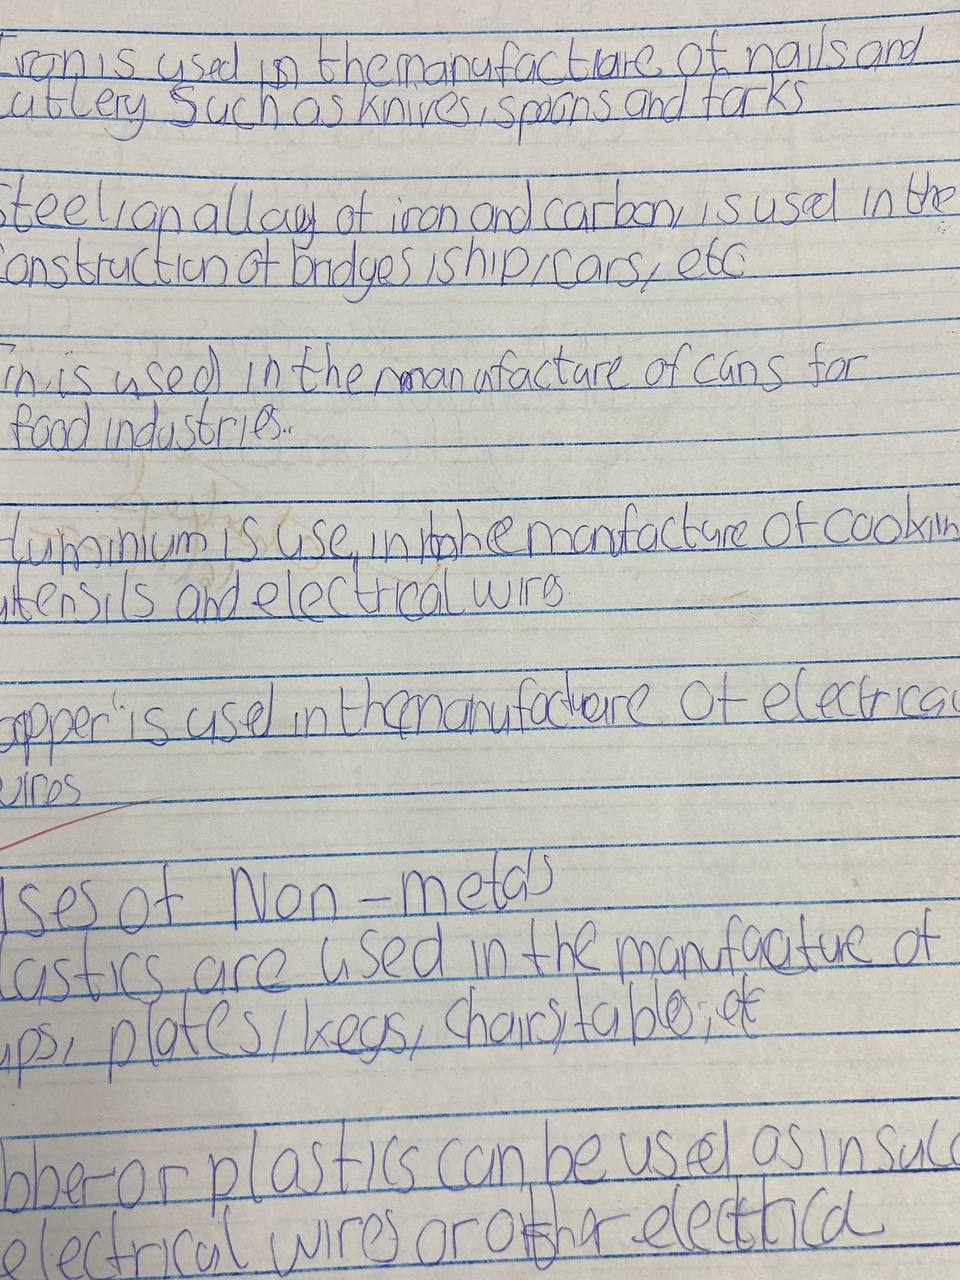 Iron is used in the manufacture of nails and
utlery such as knives, spoons and forks
Steel, an alloy of iron and carbon, is used in the
construction of bridges, ship, cars, etc
Tin is used in the manufacture of cans for
food industries.
Aluminium is use, in the manufacture of cookin
utensils and electrical wires
opper is used in the manufacture of electrical
wires
Uses of Non-metals
lastics are used in the manufactue of
ups, plates, kegs, chairs, table, etc
bber or plastics can be used as insul
electrical wires or other electrical